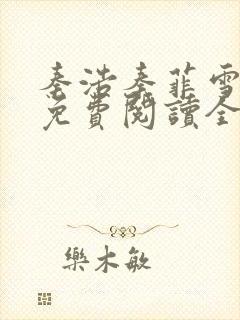 秦浩秦菲雪
免費閱讀全
樂木敏